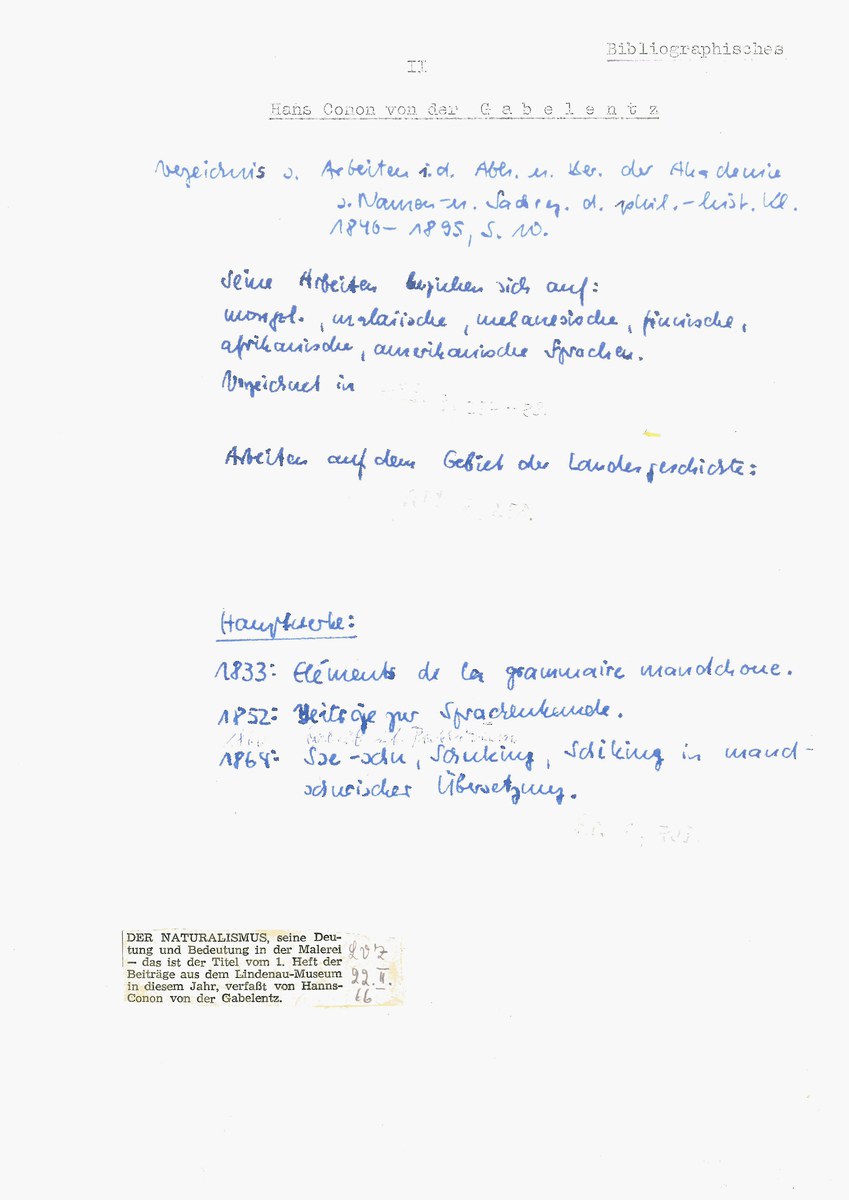 Bibliographisches
II
Hans Conon von der Gabelentz
Verzeichnis d. Arbeiten i.d. Abh. u. Ber. der Akademie
d. Namen- u. Sachreg. d. phil.-hist. Kl.
1846-1895, S. 10.
Seine Arbeiten beziehen sich auf:
mongol., malaiische, melanesische, finnische,
afrikanische, amerikanische Sprachen.
Verzeichnet in
Arbeiten auf dem Gebiet der Landesgeschichte:
Hauptwerke:
1833: Eléments de la grammaire mandchoue.
1852: Beiträge zur Sprachenkunde.
1864: Sse-schu, Schuking, Schiking in mand-
schurischer Übersetzung.
DER NATURALISMUS, seine Deu-
tung und Bedeutung in der Malerei
— das ist der Titel vom 1. Heft der
Beiträge aus dem Lindenau-Museum
in diesem Jahr, verfaßt von Hanns-
Conon von der Gabelentz.
LVZ
22. II.
66